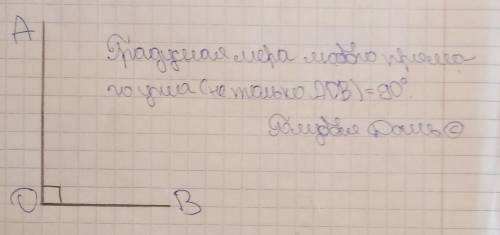 A
Градусная мера любого прямо-
го угла (не только AOB) = 90°.
Голубая Даль ©
O
B